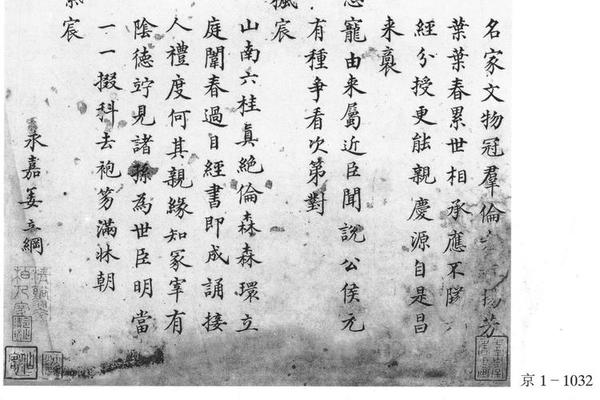 名家文物冠羣倫
葉葉春累世相承應不隊
經分授更能親慶源自是昌
来襄
寵由来屬近臣聞說公侯元
有種爭看次第對
宸
山南六桂真絶倫森森環立
庭闈春過目經書即成誦接
人禮度何其親緣知冢宰有
陰德竚見諸孫為世臣明當
一一掇科去袍笏滿牀朝
宸
永嘉姜立綱
京1-1032